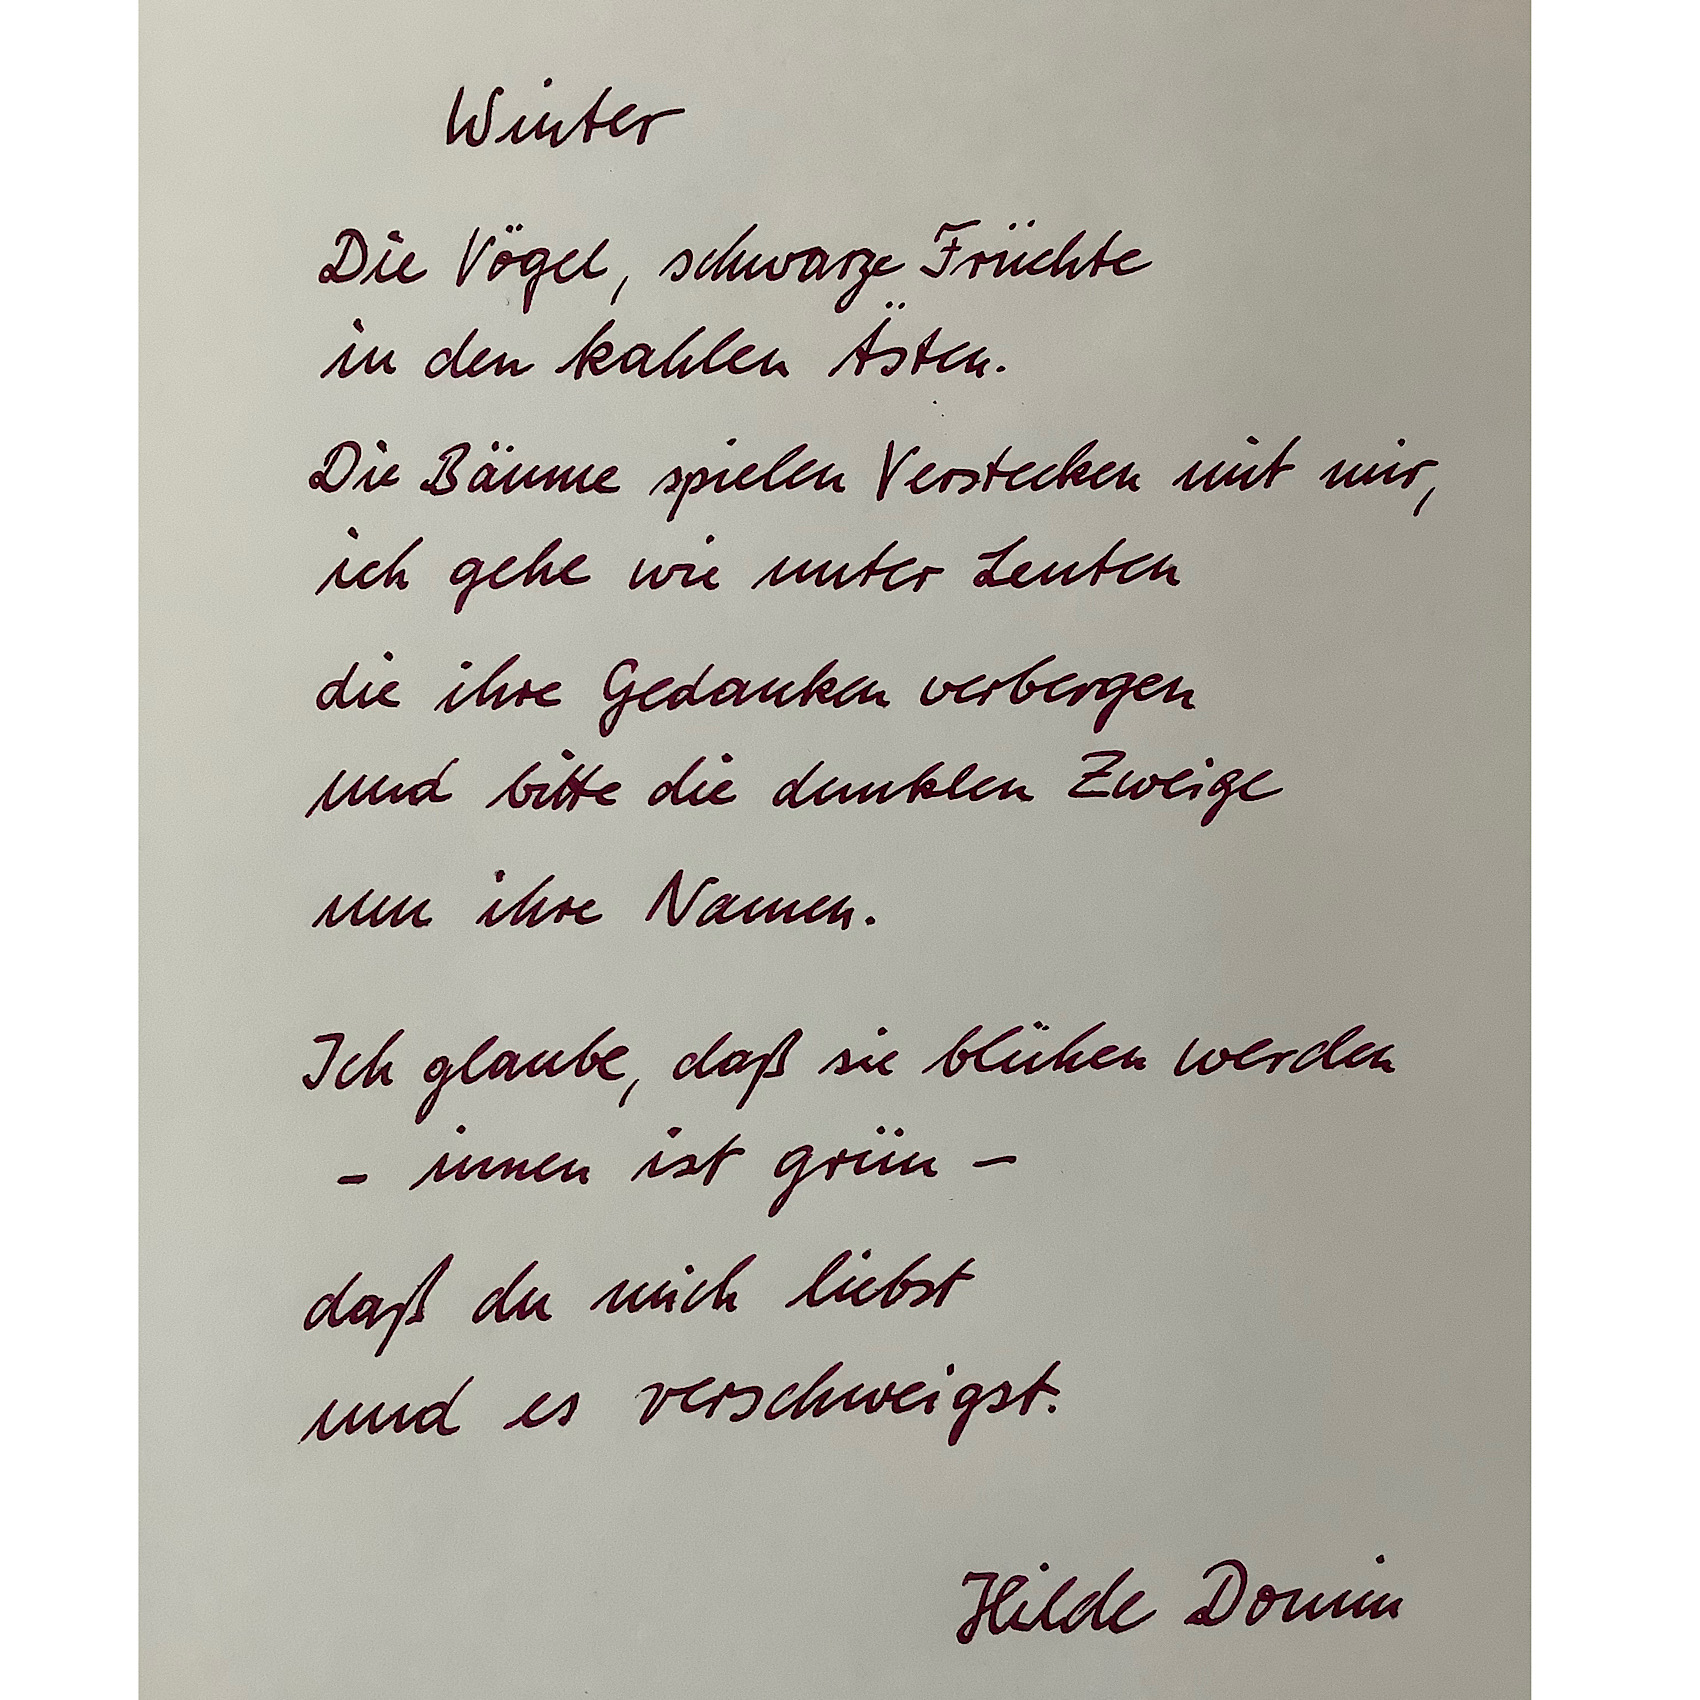 Winter
Die Vögel, schwarze Früchte
in den kahlen Ästen.
Die Bäume spielen Verstecken mit mir,
ich gehe wie unter Leuten
die ihre Gedanken verbergen
und bitte die dunklen Zweige
um ihre Namen.
Ich glaube, daß sie blühen werden
- innen ist grün -
daß du mich liebst
und es verschweigst.
Hilde Domin